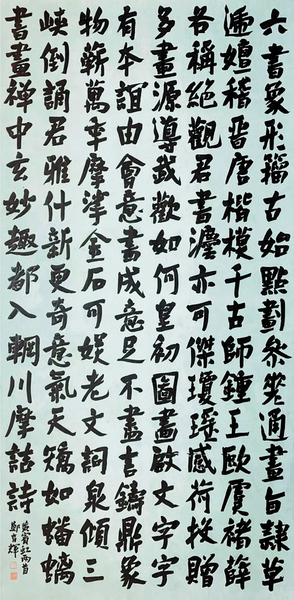 六書象形籀古始點劃參差通畫旨隸草
遞嬗稽晉唐楷模千古師鍾王歐虞褚薛
各稱絕觀君書灋亦可傑瓊瑤感荷投贈
多畫源導哉歡如何皇初圖畫啟文字字
有本誼由會意書成意足不盡言鑄鼎象
物蘄萬年摩挲金石可娛老文詞泉傾三
峽倒誦君雅什新更奇意氣天矯如蟠螭
書畫禪中玄妙趣都入輞川摩詰詩
黃賓虹兩首